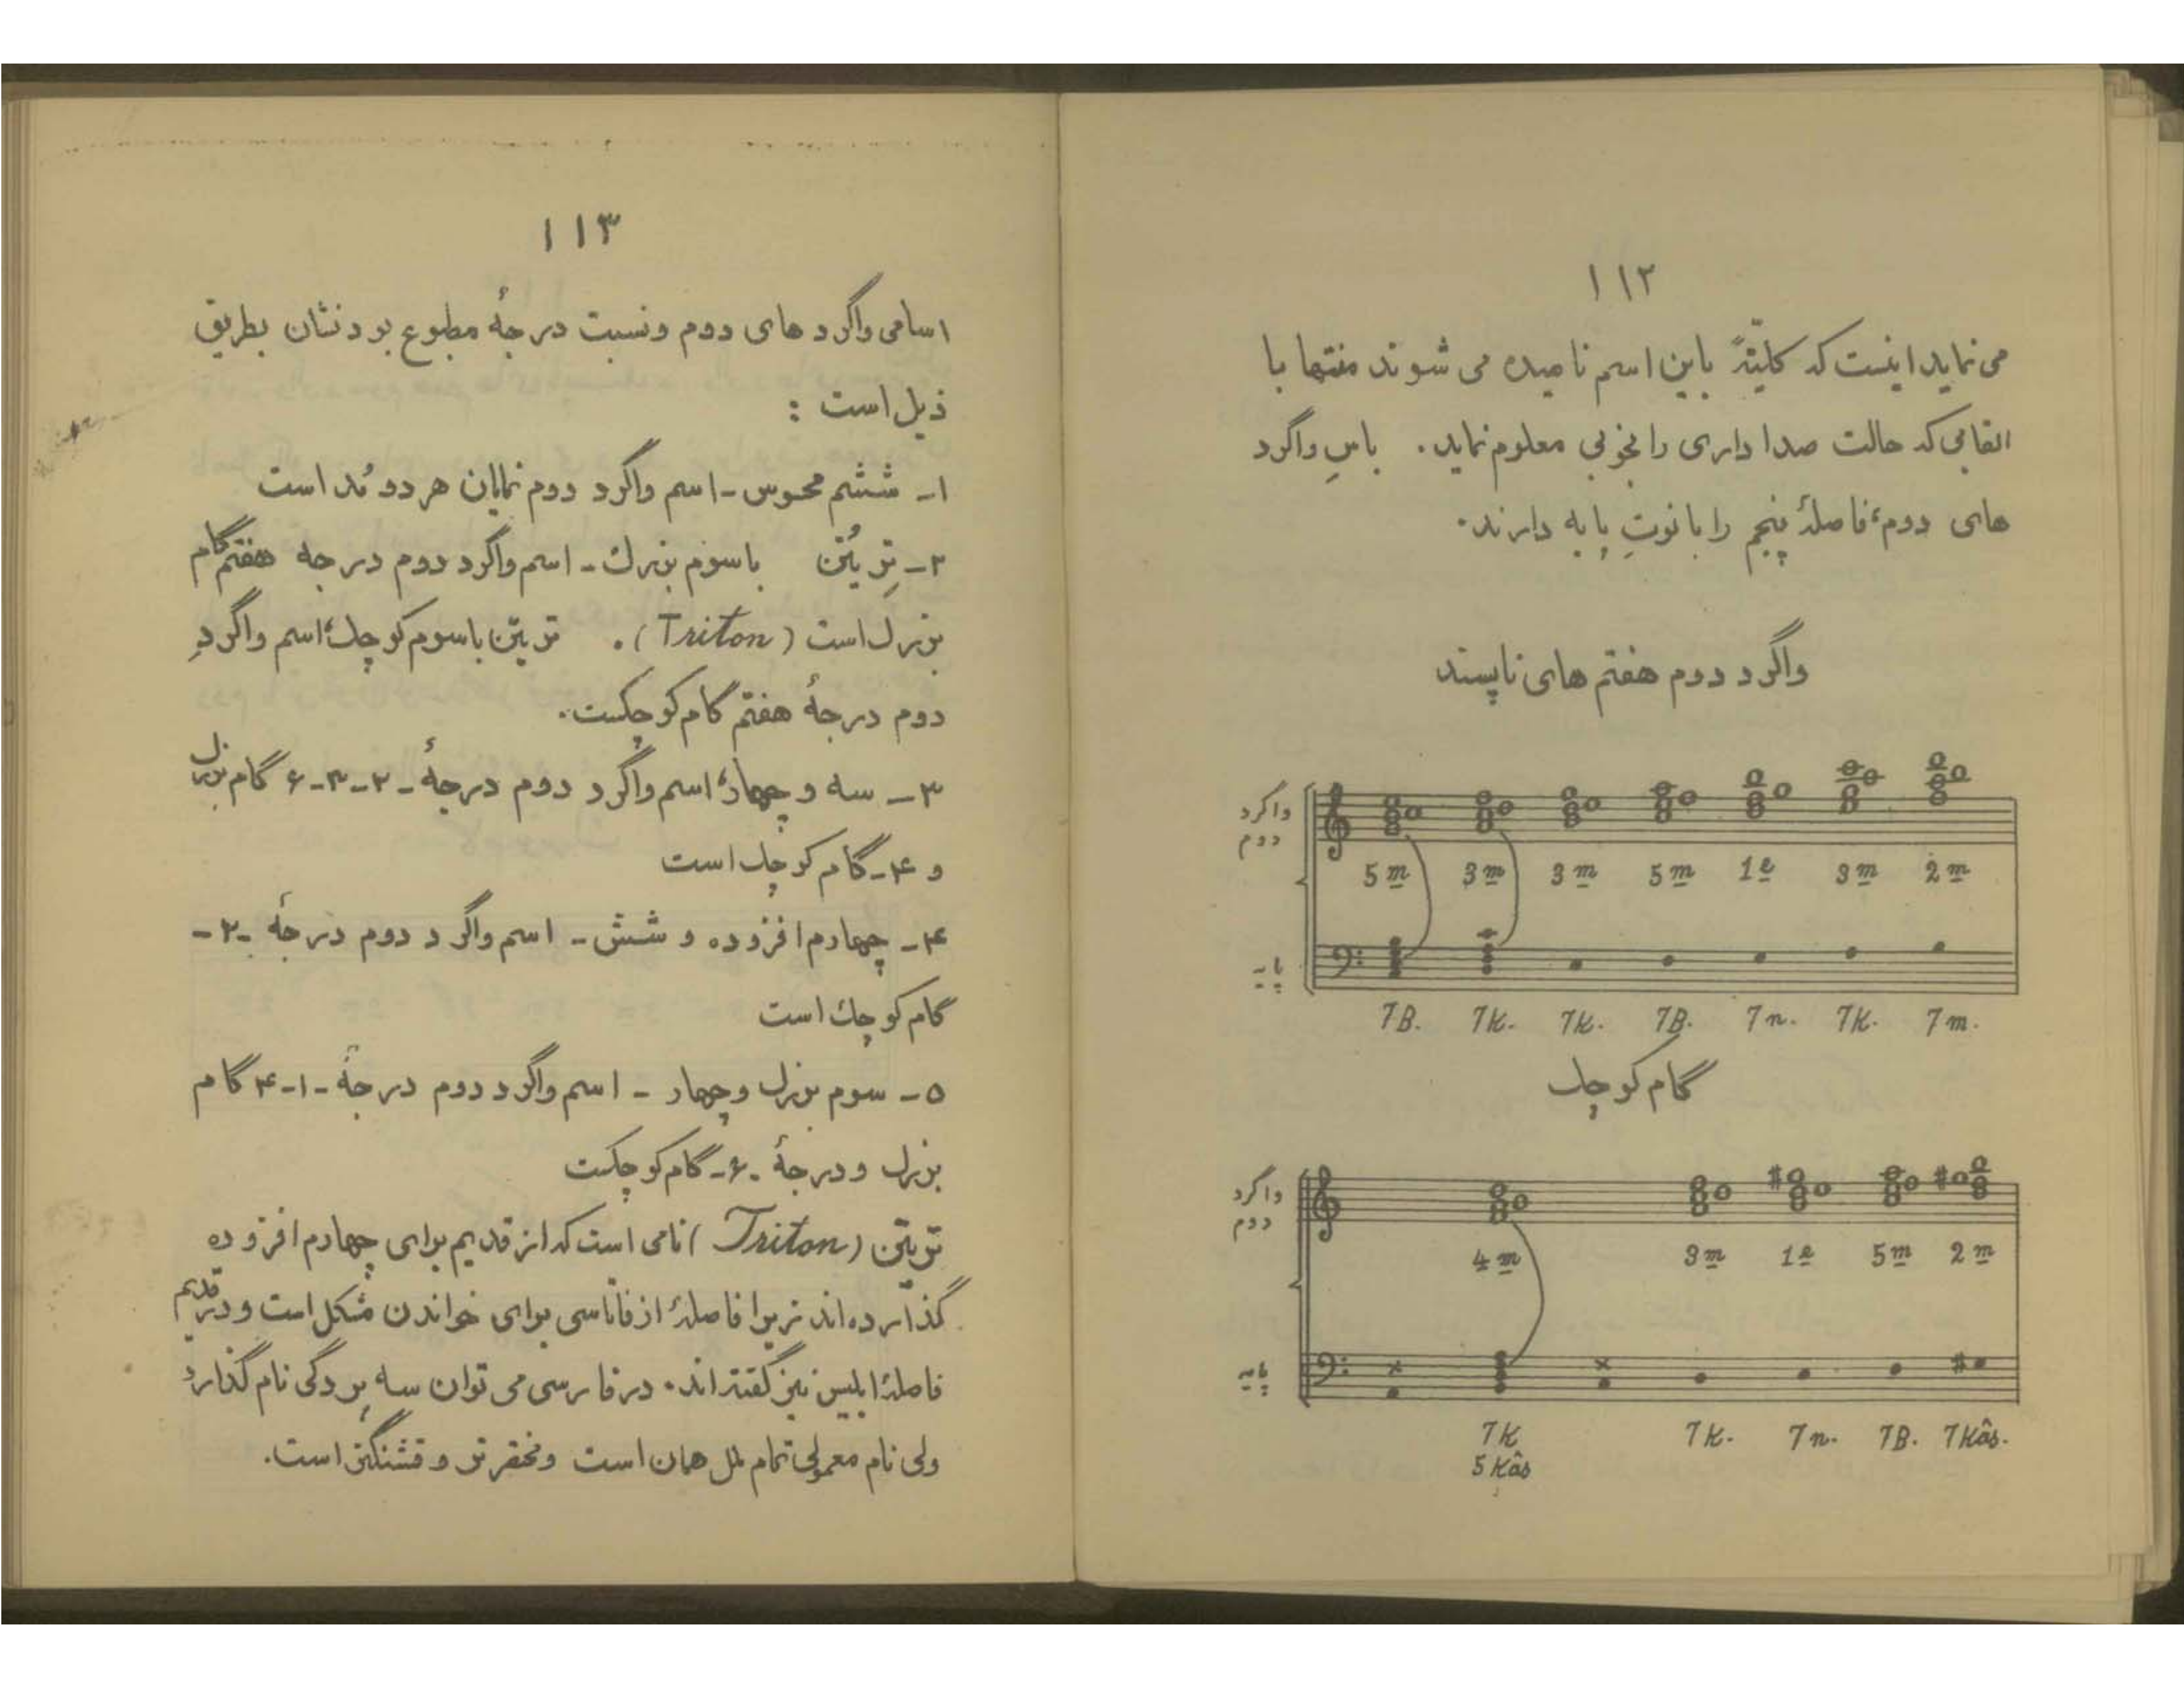 ۱۱۲
می نماید اینست که کلیتهً باین اسم نامیده می شوند منتها با
القابی که حالت صدا داری را بخوبی معلوم نماید. باسِ واگرد
های دوم، فاصلهٔ پنجم را با نوتِ پایه دارند.
واگرد دوم هفتم های ناپسند
واگرد
دوم
5 m 3 m 3 m 5 m 1 e 3 m 2 m
پایه
7B. 7K. 7K. 7B. 7n. 7K. 7m.
گام کوچک
واگرد
دوم
4 m 3 m 1 e 5 m 2 m
پایه
7K 7K. 7n. 7B. 7Kâs.
5 Kâs
۱۱۳
اسامی واگرد های دوم و نسبت درجهٔ مطبوع بودنشان بطریق
ذیل است :
۱ـ ششم محسوس ـ اسم واگرد دوم نمایان هر دو مُد است
۲ـ تِریتُن باسوم بزرك ـ اسم واگرد دوم درجه هفتم گام
بزرك است (Triton). تریتن باسوم کوچك، اسم واگردِ
دوم درجهٔ هفتم گام کوچکست.
۳ـ سه و چهار، اسم واگرد دوم درجهٔ ـ ۲ـ۳ـ۶ گام بزرك
و ۴ـ گام کوچك است
۴ـ چهارم افزوده و شش ـ اسم واگرد دوم درجهٔ ـ۲ـ
گام کوچك است
۵ـ سوم بزرك و چهار ـ اسم واگرد دوم درجهٔ ـ۱ـ۴ گام
بزرك و درجهٔ ـ۶ـ گام کوچکست
تریتن (Triton) نامی است که از قدیم برای چهارم افزوده
گذارده اند زیرا فاصلهٔ از فا تا سی برای خواندن مشکل است و در قدیم
فاصلهٔ ابلیس نیز گفته اند. در فارسی می توان سه پردگی نام گذارد
ولی نام معمولی تمام ملل همان است و مختصر تر و قشنگتر است.